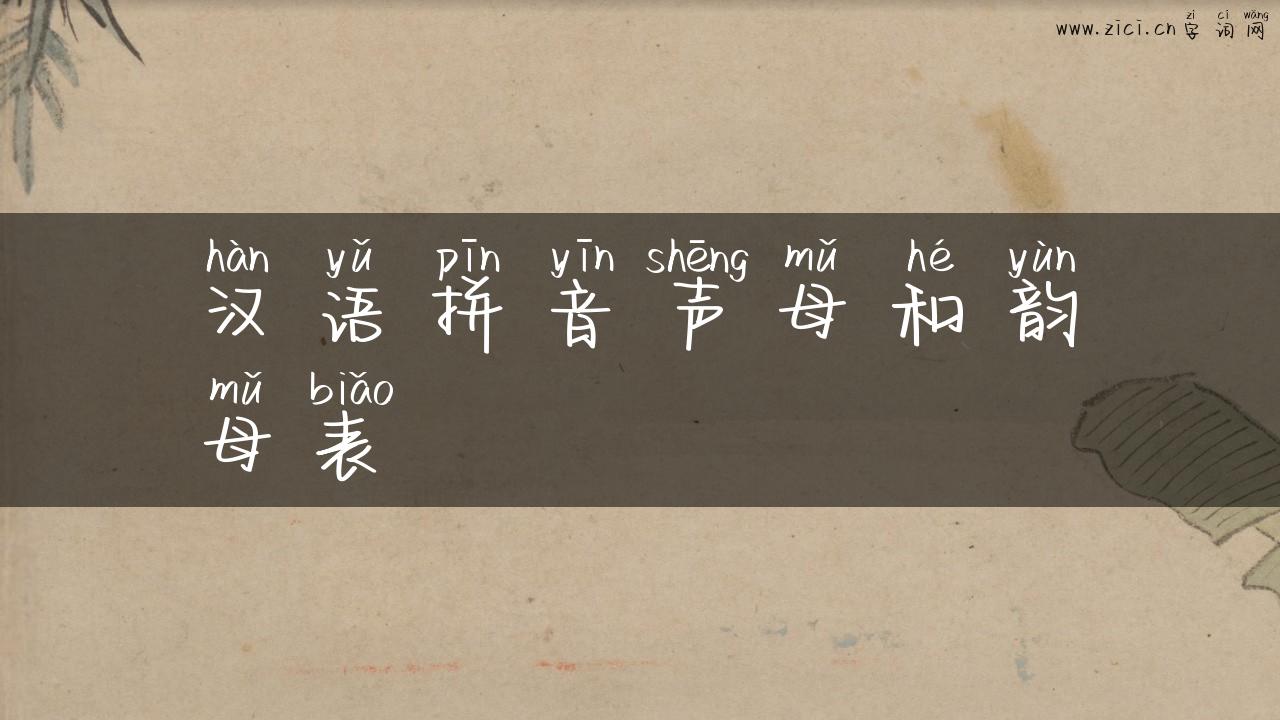 zì cí wǎng
www.zici.cn 字 词 网
hàn yǔ pīn yīn shēng mǔ hé yùn
汉 语 拼 音 声 母 和 韵
mǔ biǎo
母 表